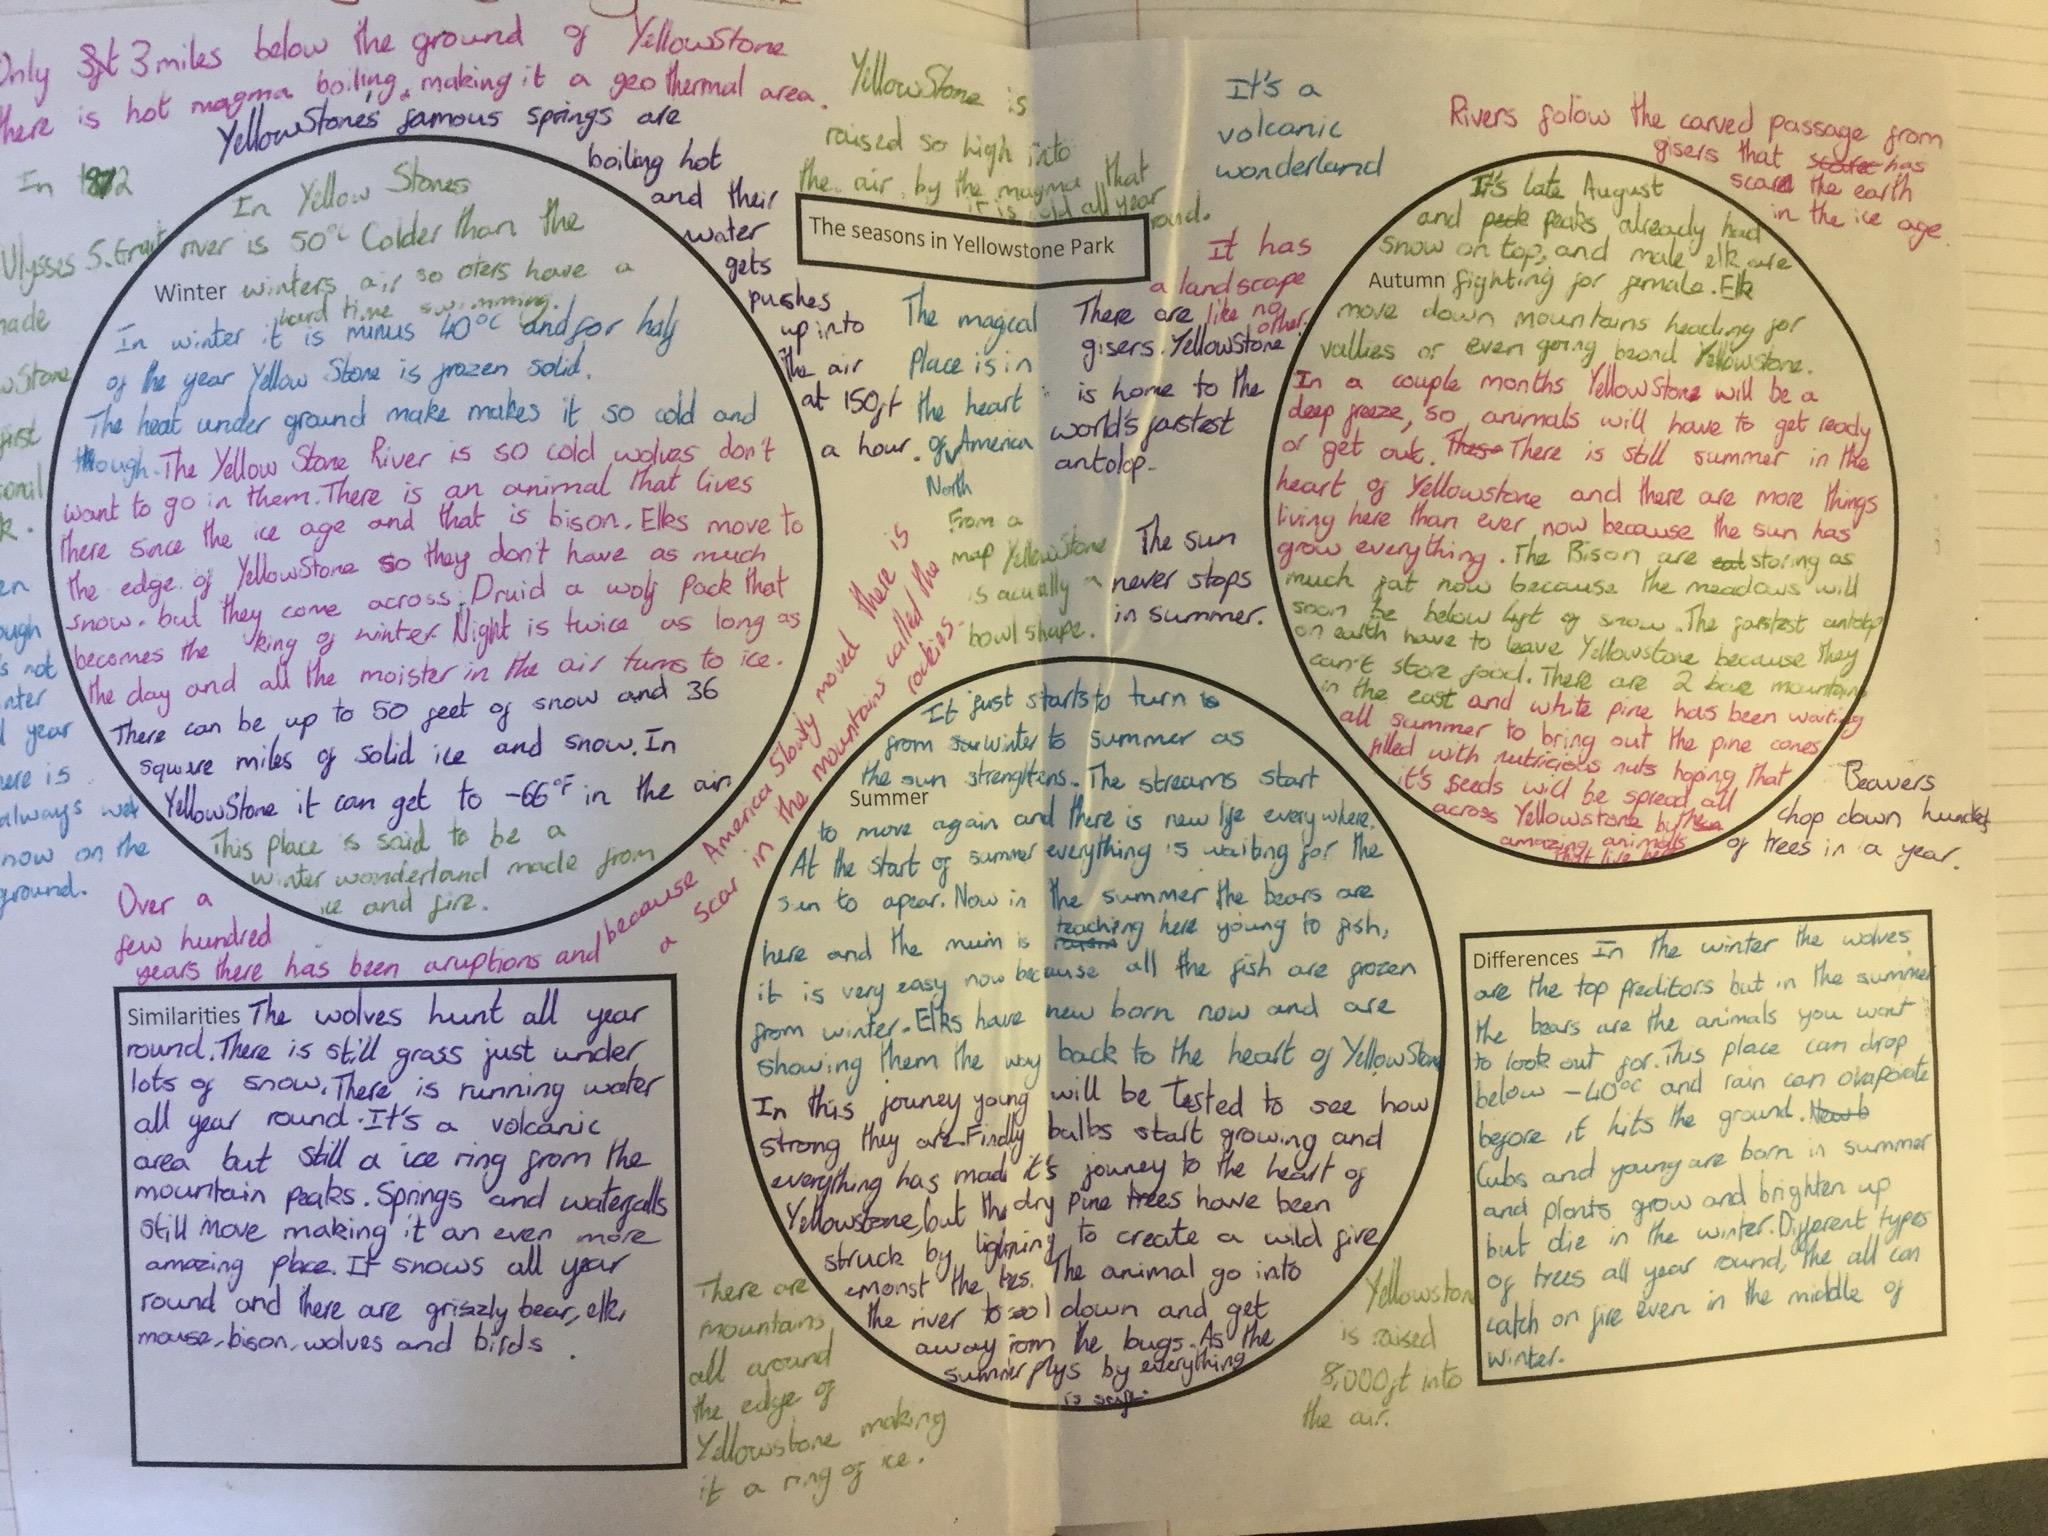 Only 3ft 3 miles below the ground of YellowStone
there is hot magma boiling, making it a geo thermal area.
YellowStone's famous springs are
boiling hot
and their
water
gets
pushes
up into
the air
at 150ft
a hour.
In 1872
Ulysses S. Grant
made
first
YellowStone is
raised so high into
the air, by the magma that
it is cold all year
round.
It's a
volcanic
wonderland
Rivers folow the carved passage from
gisers that scaret has
scared the earth
in the ice age.
The seasons in Yellowstone Park
It has
a landscape
like no
other.
The magical
Place is in
the heart
of America
North
There are
gisers. YellowStone
is home to the
world's farstest
antolop.
From a
map YellowStone
is acually a
bowl shape.
The sun
never stops
in summer.
Winter
In Yellow Stones
river is 50°C Colder than the
winters air so oters have a
hard time swimming.
In winter it is minus 40°C and for half
of the year Yellow Stone is frozen solid.
The heat under ground make makes it so cold and
though. The Yellow Stone River is so cold wolves don't
want to go in them. There is an animal that lives
there since the ice age and that is bison. Elks move to
the edge of YellowStone so they don't have as much
snow. but they come across. Druid a wolf pack that
becomes the king of winter. Night is twice as long as
the day and all the moister in the air turns to ice.
There can be up to 50 feet of snow and 36
square miles of solid ice and snow. In
YellowStone it can get to -66°F in the air
This place is said to be a
winter wonderland made from
ice and fire.
not
year
always wet
now on the
ground.
Over a
few hundred
years there has been aruptions and
because America slowly moved there is
a scar in the mountains called the
rockies.
Autumn
It's late August
and peck peaks already had
snow on top, and male elk are
fighting for female. Elk
move down mountains heading for
vallies or even going beond Yellowstone.
In a couple months YellowStone will be a
deep freeze, so, animals will have to get ready
or get out. These There is still summer in the
heart of Yellowstone and there are more things
living here than ever now because the sun has
grow everything. The Bison are eat storing as
much fat now because the meadows will
soon be below 4ft of snow. The farstest antolop
on earth have to leave Yellowstone because they
can't store food. There are 2 bare mountains
in the east and white pine has been waiting
all summer to bring out the pine cones
filled with nutricious nuts hoping that
it's seeds will be spread all
across Yellowstone by the
amazing animals
that live here
Beavers
chop down hundreds
of trees in a year.
Summer
It just starts to turn is
from winter to summer as
the sun strenghtens. The streams start
to move again and there is new life everywhere.
At the start of summer everything is waiting for the
sun to apear. Now in the summer the bears are
here and the mum is teaching here young to fish,
it is very easy now because all the fish are frozen
from winter. Elks have new born now and are
showing them the way back to the heart of YellowStone
In this jouney young will be Tested to see how
strong they are. Finally bulbs start growing and
everything has made it's jouney to the heart of
Yellowstone, but the dry pine trees have been
struck by lightning to create a wild fire
emonst the The animal go into
the river to cool down and get
away from the bugs. As the
summer flys by everything
is
Similarities The wolves hunt all year
round. There is still grass just under
lots of snow. There is running water
all year round. It's a volcanic
area but still a ice ring from the
mountain peaks. Springs and waterfalls
still move making it an even more
amazing place. It snows all year
round and there are grizzly bear, elk,
mouse, bison, wolves and birds.
There are
mountains
all around
the edge of
Yellowstone making
it a ring of ice.
Yellowstone
is raised
8,000ft into
the air.
Differences In the winter the wolves
are the top preditors but in the summer
the bears are the animals you want
to look out for. This place can drop
below -40°C and rain can ovaporate
before it hits the ground. New b
Cubs and young are born in summer
and plants grow and brighten up
but die in the winter. Different types
of trees all year round, the all can
catch on fire even in the middle of
winter.